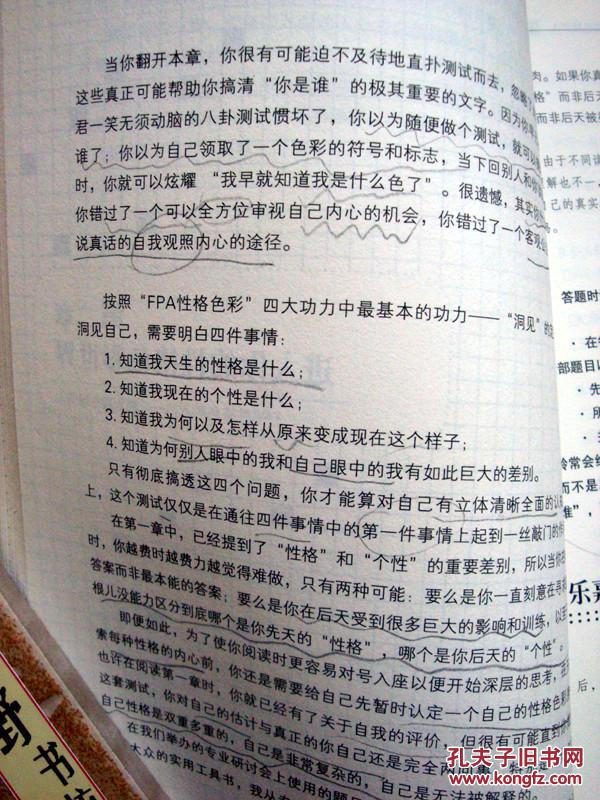 当你翻开本章，你很有可能迫不及待地直扑测试而去，忽
这些真正可能帮助你搞清“你是谁”的极其重要的文字。因为你
君一笑无须动脑的八卦测试惯坏了，你以为随便做个测试，就可以
谁了；你以为自己领取了一个色彩的符号和标志，当下回别人和你
时，你就可以炫耀“我早就知道我是什么色了”。很遗憾，其实你
你错过了一个可以全方位审视自己内心的机会，你错过了一个客观
说真话的自我观照内心的途径。
按照“FPA性格色彩”四大功力中最基本的功力——“洞见”的
洞见自己，需要明白四件事情：
1.知道我天生的性格是什么；
2.知道我现在的个性是什么；
3.知道我为何以及怎样从原来变成现在这个样子；
4.知道为何别人眼中的我和自己眼中的我有如此巨大的差别。
只有彻底搞透这四个问题，你才能算对自己有立体清晰全面的认
上，这个测试仅仅是在通往四件事情中的第一件事情上起到一丝敲门的作
在第一章中，已经提到了“性格”和“个性”的重要差别，所以当你
时，你越费时越费力越觉得难做，只有两种可能：要么是你一直刻意在寻
答案而非最本能的答案；要么是你在后天受到很多巨大的影响和训练，以
根儿没能力区分到底哪个是你先天的“性格”，哪个是你后天的“个性”。
即便如此，为了使你阅读时更容易对号入座以便开始深层的思考，在
索每种性格的内心前，你还是需要给自己先暂时认定一个自己的性格色彩
也许在阅读第一章时，你就已经有了关于自我的评价，但很有可能直到
这套测试，你对自己的估计与真正的你自己还是完全两回事，特别是
自己性格是双重多重的，自己是非常复杂的，自己是无法被解释的。
在我们举办的专业研讨会上使用的题目
大众的实用工具书，我从
肉。如果你真
格”而非后天
而非后天被
由于不同
解也不一，
己的真实
答题时
·在
部题目以
·先
·所
冷常会给
而不是
准”，
乐嘉
后，
书
孔夫子旧书网
www.kongfz.com